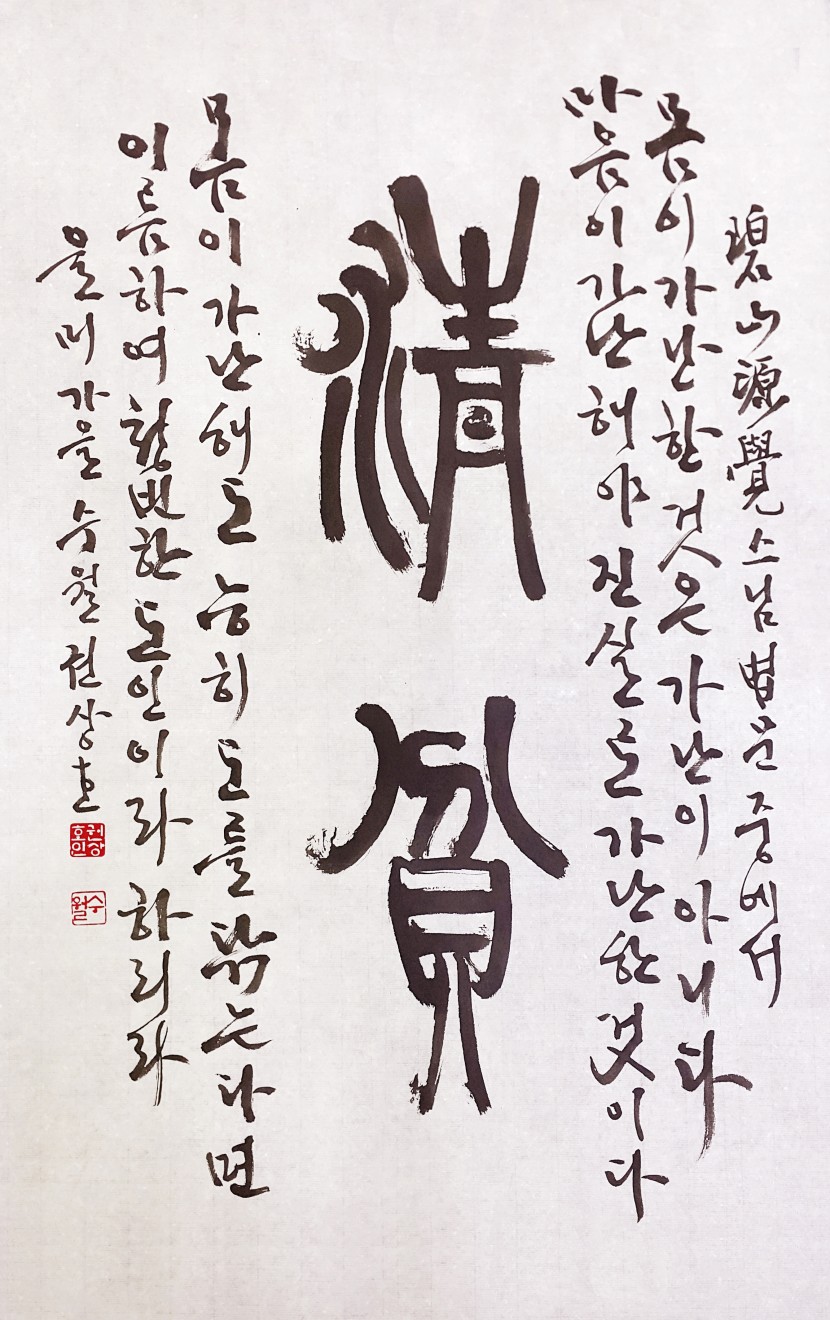 碧山源覺스님 법문 중에서
몸이 가난한 것은 가난이 아니다
마음이 가난해야 진실로 가난한 것이다
清貧
몸이 가난해도 능히 도를 닦는다면
이름하여 청빈한 도인이라 하리라
을미 가을 수월 권상호
권상호인
수월